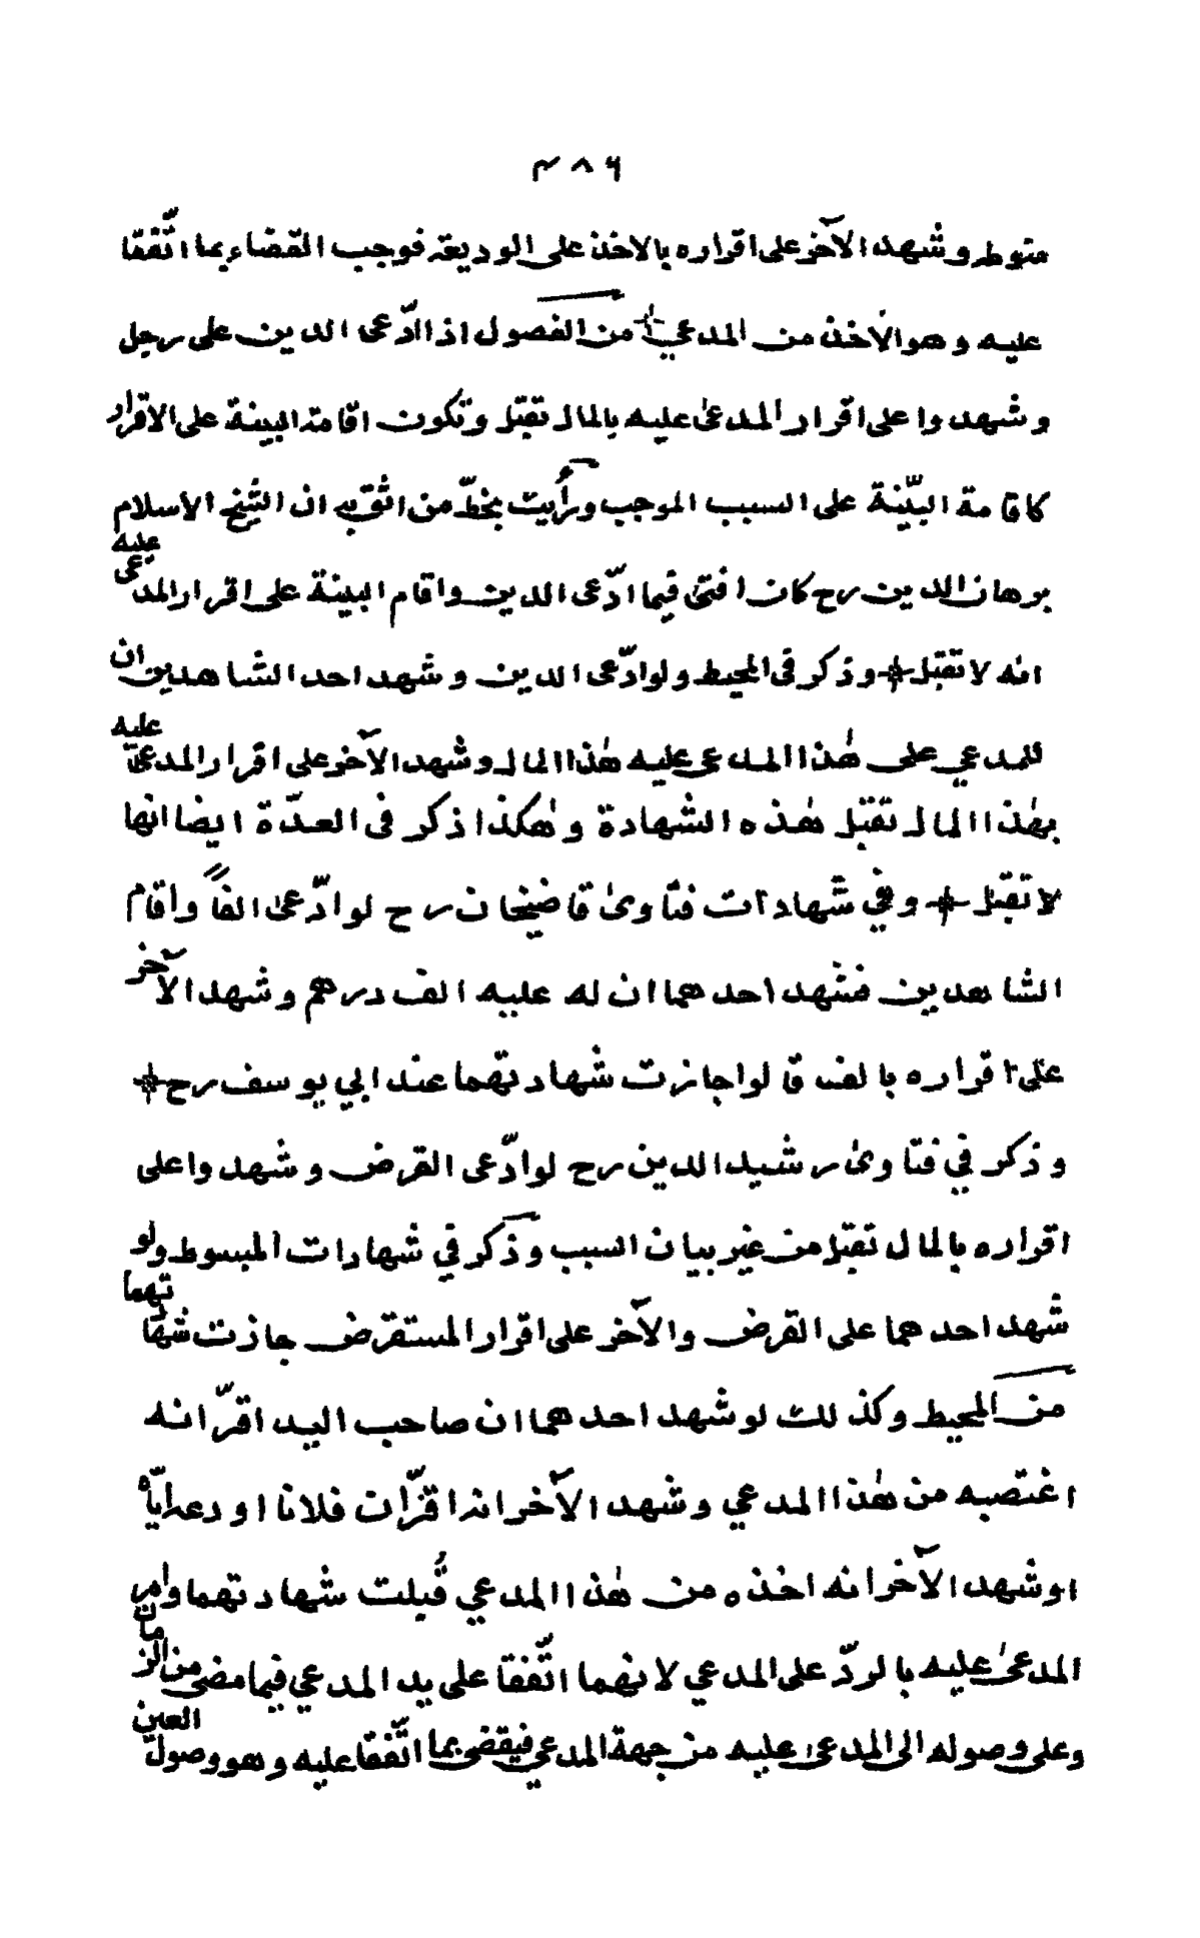 ٣٨٦
متوطه وشهد الآخر على اقراره بالاخذ على الوديعة فوجب القضاء بما اتّفقا
عليه وهو الأخذ من المدعي من الفصول اذا ادّعى الدين على رجل
وشهدوا على اقرار المدعىٰ عليه بالمال تقبل وتكون اقامة البينة على الاقرار
كاقامة البيّنة على السبب الموجب ورأيت بخطّ من اثق به ان الشيخ الاسلام
برهان الدين رح كان افتى فيما ادّعى الدين واقام البينة على اقرار المدّعى عليه
انه لا تقبل وذكر في المحيط ولو ادّعى الدين وشهد احد الشاهدين ان
للمدعي على هٰذا المدعى عليه هٰذا المال وشهد الآخر على اقرار المدعى عليه
بهٰذا المال تقبل هٰذه الشهادة وهٰكذا ذكر في العدّة ايضا انها
لا تقبل وفي شهادات فتاوىٰ قاضيخان رح لو ادّعىٰ الفاً واقام
الشاهدين فشهد احدهما ان له عليه الف درهم وشهد الآخر
على اقراره بالف قالوا جازت شهادتهما عند ابي يوسف رح
وذكر في فتاوىٰ رشيد الدين رح لو ادّعى القرض وشهدوا على
اقراره بالمال تقبل من غير بيان السبب وذكر في شهادات المبسوط ولو
شهد احدهما على القرض والآخر على اقرار المستقرض جازت شهادتهما
من المحيط وكذلك لو شهد احدهما ان صاحب اليد اقرّ انه
اغتصبه من هٰذا المدعي وشهد الآخر انه اقرّ ان فلانا اودعه ايّاه
او شهد الآخر انه اخذه من هٰذا المدعي قُبلت شهادتهما وامر
المدعىٰ عليه بالردّ على المدعي لانهما اتّفقا على يد المدعي فيما مضى من الزمان
وعلى وصوله الى المدعى عليه من جهة المدعي فيقضى بما اتّفقا عليه وهو وصول العين